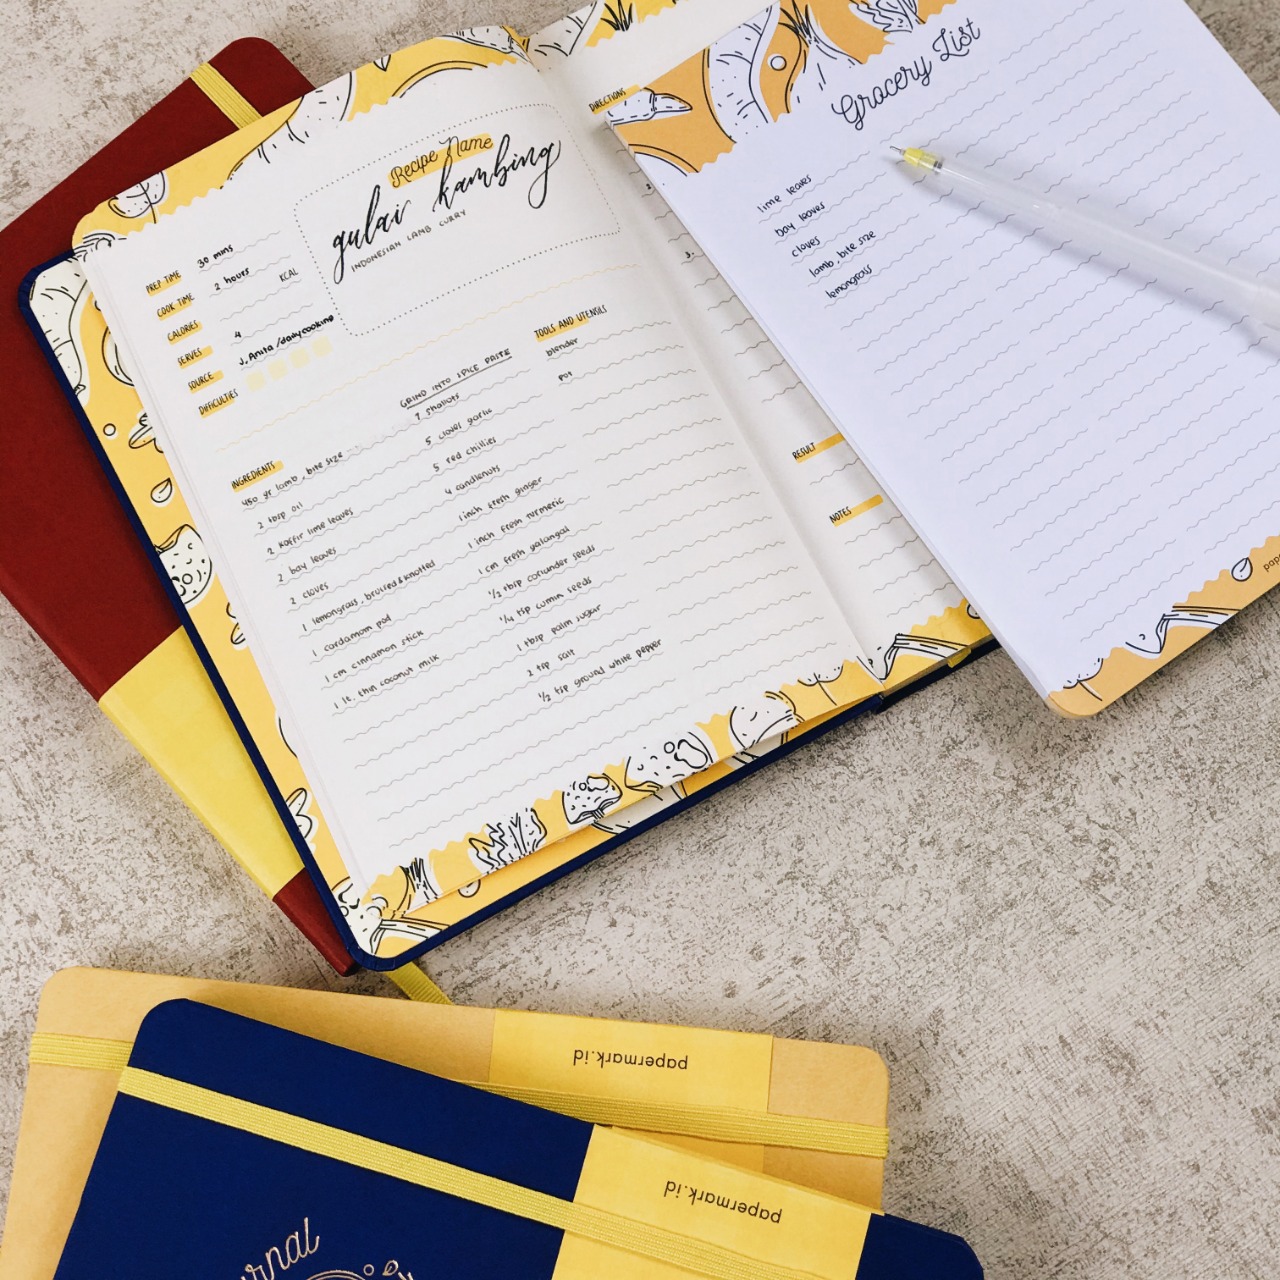 Recipe Name
gulai kambing
INDONESIAN LAMB CURRY
PREP TIME 30 mins
COOK TIME 2 hours
CALORIES KCAL
SERVES 4
SOURCE J. Anita / dailycooking
DIFFICULTIES
INGREDIENTS
450 gr lamb, bite size
2 tbsp oil
2 kaffir lime leaves
2 bay leaves
2 cloves
1 lemongrass, bruised & knotted
1 cardamom pod
1 cm cinnamon stick
1 lt. thin coconut milk
GRIND INTO SPICE PASTE
7 shallots
5 clove garlic
5 red chillies
4 candlenuts
1 inch fresh ginger
1 inch fresh turmeric
1 cm fresh galangal
1/2 tbsp coriander seeds
1/4 tsp cumin seeds
1 tbsp palm sugar
2 tsp salt
1/2 tsp ground white pepper
TOOLS AND UTENSILS
blender
pot
DIRECTIONS
RESULT
NOTES
Grocery List
lime leaves
bay leaves
cloves
lamb, bite size
lemongrass
papermark.id
papermark.id